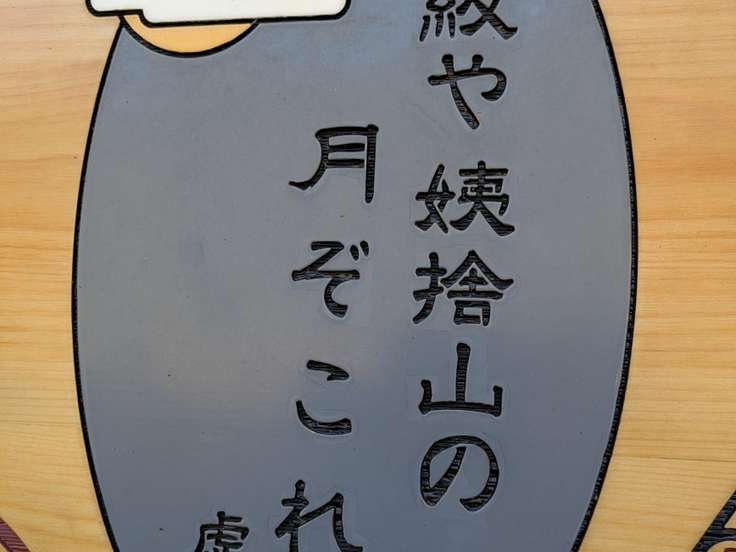 級や姨捨山の
月ぞこれ
虚